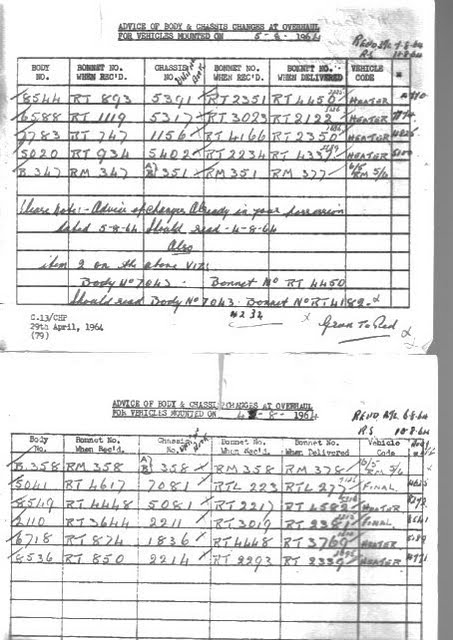 ADVICE OF BODY & CHASSIS CHANGES AT OVERHAUL
FOR VEHICLES MOUNTED ON 5-8-1964
RS 10-8-64
BODY NO. BONNET NO. WHEN REC'D. CHASSIS NO. BONNET NO. WHEN REC'D. BONNET NO. WHEN DELIVERED VEHICLE CODE
8544 RT 893 5391 RT 2351 RT 4450 HEATER
6588 RT 1119 5317 RT 3023 RT 2122 HEATER
2783 RT 747 1156 RT 4166 RT 2350 HEATER
5020 RT 934 5402 RT 2234 RT 4337 HEATER
B.347 RM 347 A/B 351 RM 351 RM 377 6/5 RM 5/6
Please note:- Advice of changes already in your possession
dated 5-8-64 Should read -4-8-64
Also
item 2 on the above VIZ:
Body No 7043. Bonnet No RT 4450
Should read Body No 7043. Bonnet No RT 4182
4232
Gran To Red
C.13/CHF
29th April, 1964
(79)
ADVICE OF BODY & CHASSIS CHANGES AT OVERHAUL
FOR VEHICLES MOUNTED ON 4-8-1964
RS 10-8-64
Body No. Bonnet No. When Rec'd. Chassis No. Bonnet No. When Rec'd. Bonnet No. When Delivered Vehicle Code
B.358 RM 358 A/B 358 RM 358 RM 378 6/5 RM 5/6
5041 RT 4617 7081 RTL 223 RTL 277 FINAL
8519 RT 4448 5081 RT 2217 RT 4582 HEATER
2110 RT 3644 2211 RT 3019 RT 2381 FINAL
6718 RT 874 1836 RT 4448 RT 3769 HEATER
8536 RT 850 2214 RT 2293 RT 2339 HEATER